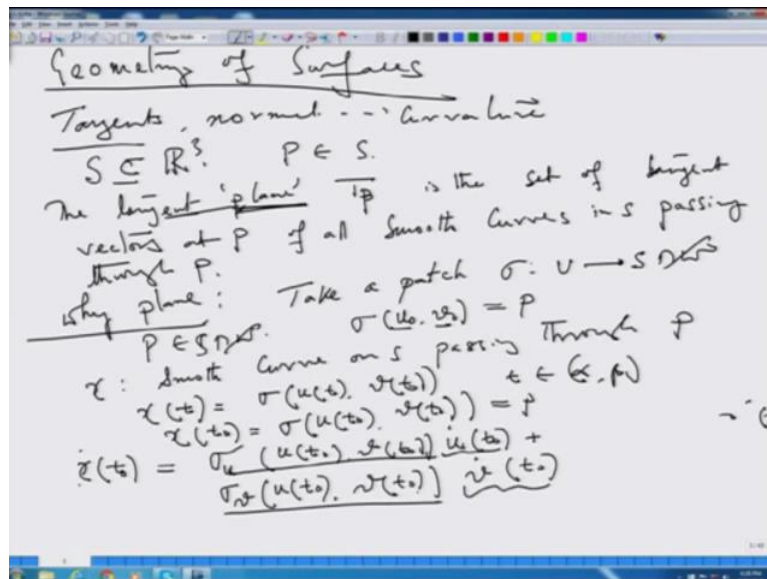 Geometry of Surfaces
Tangents, normal --- curvature
S ⊆ ℝ³. P ∈ S.
The tangent 'plane' T_P is the set of tangent
vectors at P of all smooth curves in S passing
through P.
Why plane: Take a patch σ: U → S
P ∈ S σ(u₀, v₀) = P
γ: Smooth curve on S passing through P
γ(t) = σ(u(t), v(t)) t ∈ (α, β)
γ(t₀) = σ(u(t₀), v(t₀)) = P
γ̇(t₀) = σ_u (u(t₀), v(t₀)) u̇(t₀) +
σ_v (u(t₀), v(t₀)) v̇(t₀)